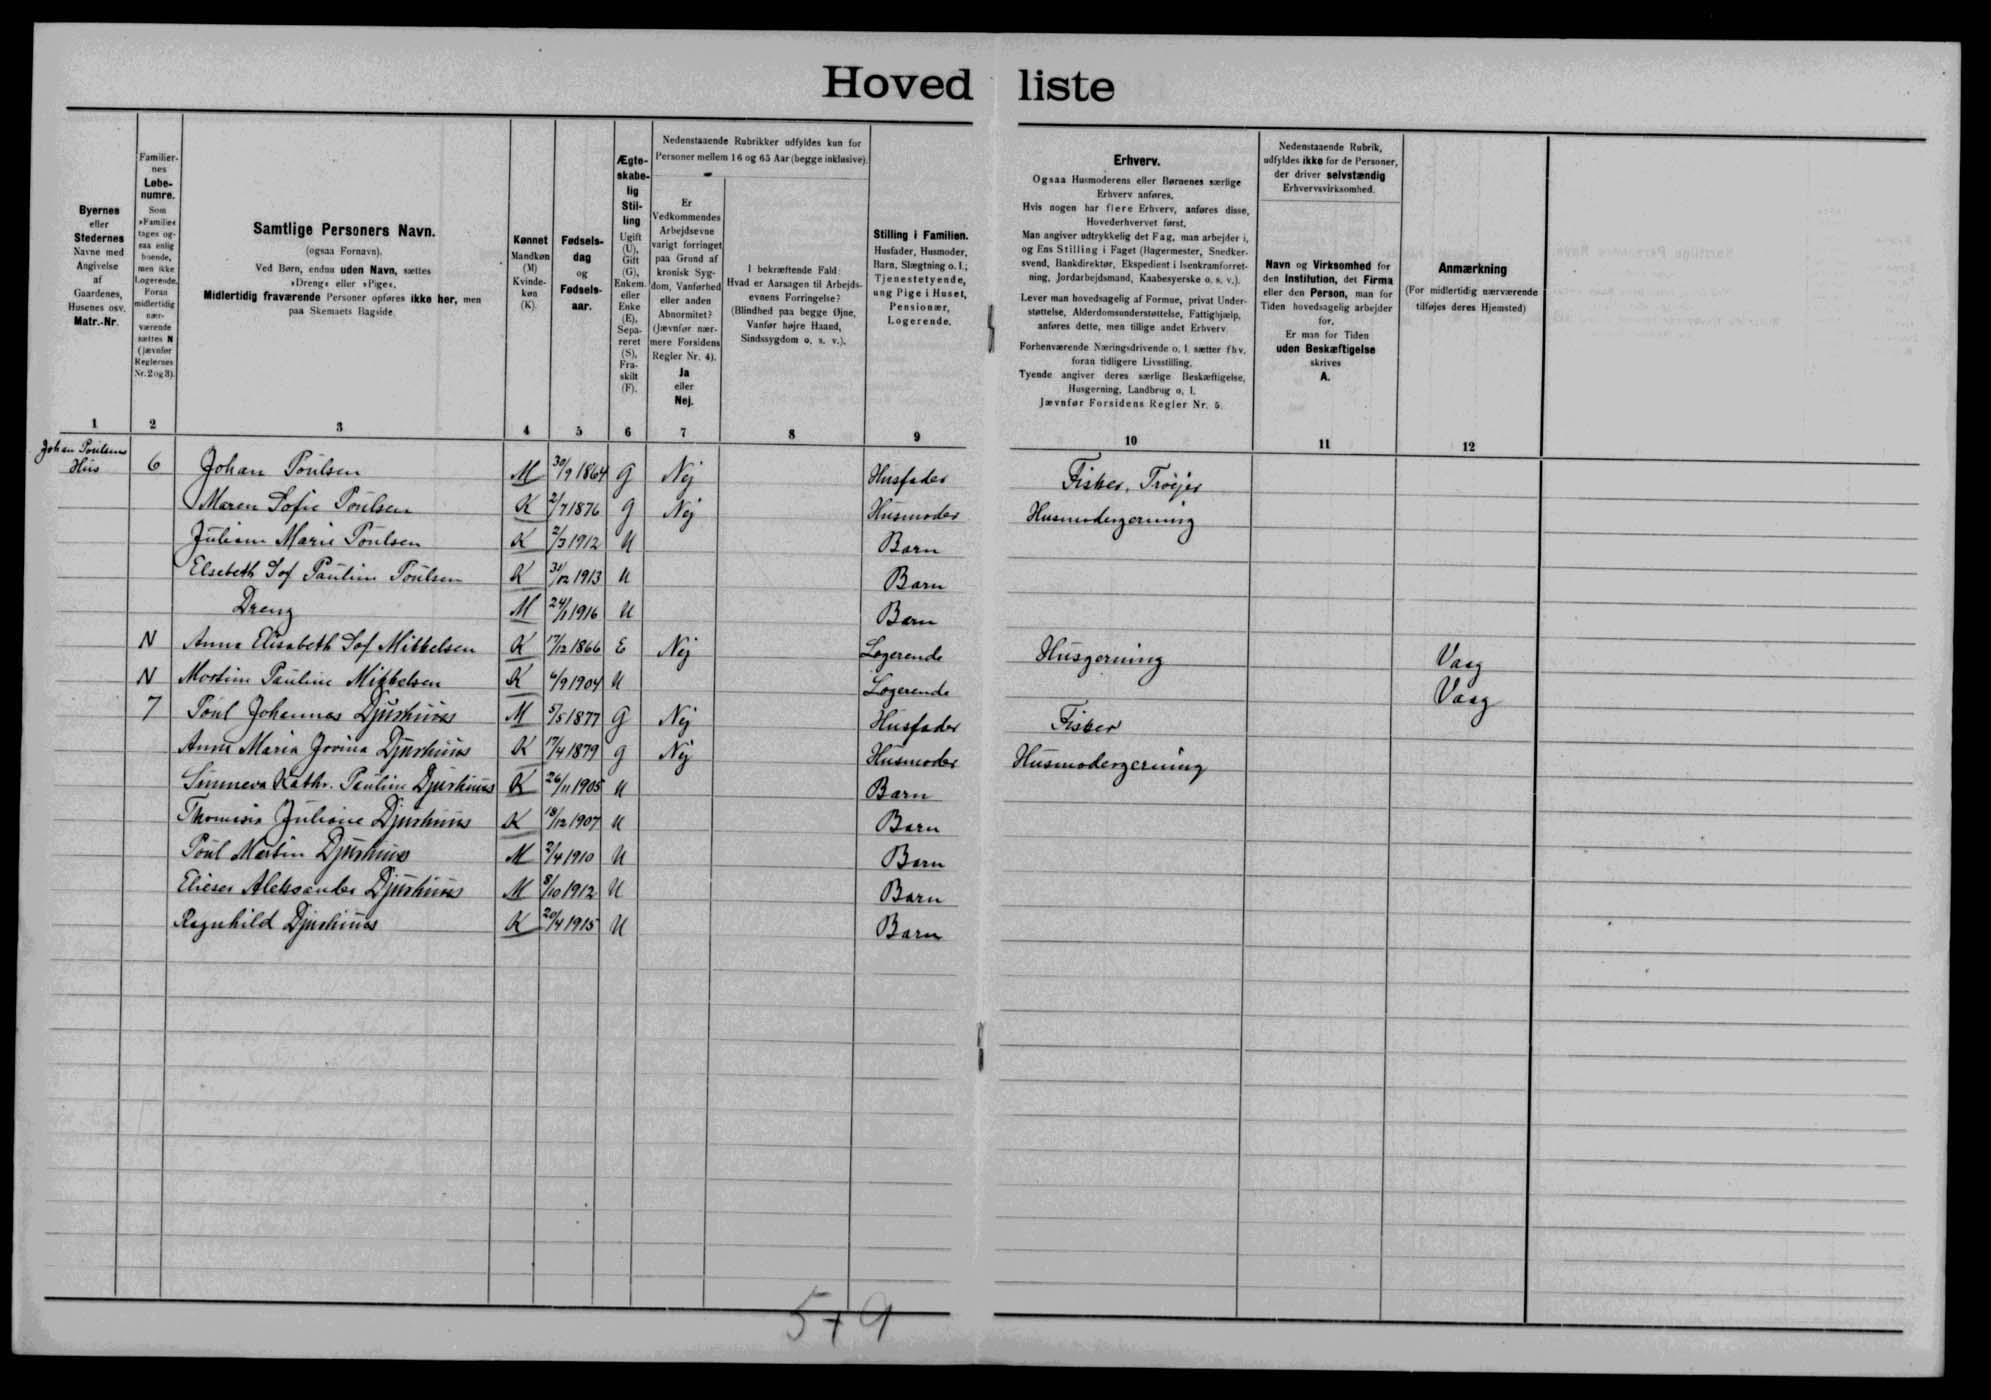 Hoved liste
Byernes
eller
Stedernes
Navne med
Angivelse
af
Gaardenes,
Husenes osv.
Matr.-Nr.
Familier-
nes
Løbe-
numre.
Som
»Familie«
tages og-
saa enlig
boende,
men ikke
Logerende.
Foran
midlertidig
nær-
værende
sættes N
(jævnfør
Reglernes
Nr. 2 og 3).
Samtlige Personers Navn.
(ogsaa Fornavn).
Ved Børn, endnu uden Navn, sættes
»Dreng« eller »Pige«.
Midlertidig fraværende Personer opføres ikke her, men
paa Skemaets Bagside.
Kønnet
Mandkøn
(M)
Kvinde-
køn
(K).
Fødsels-
dag
og
Fødsels-
aar.
Ægte-
skabe-
lig
Stil-
ling
Ugift
(U),
Gift
(G),
Enkem.
eller
Enke
(E),
Sepa-
reret
(S),
Fra-
skilt
(F).
Nedenstaaende Rubrikker udfyldes kun for
Personer mellem 16 og 65 Aar (begge inklusive).
Er
Vedkommendes
Arbejdsevne
varigt forringet
paa Grund af
kronisk Syg-
dom, Vanførhed
eller anden
Abnormitet?
(Jævnfør nær-
mere Forsidens
Regler Nr. 4).
Ja
eller
Nej.
I bekræftende Fald:
Hvad er Aarsagen til Arbejds-
evnens Forringelse?
(Blindhed paa begge Øjne,
Vanfør højre Haand,
Sindssygdom o. s. v.).
Stilling i Familien.
Husfader, Husmoder,
Barn, Slægtning o. l.;
Tjenestetyende,
ung Pige i Huset,
Pensionær,
Logerende.
Erhverv.
Ogsaa Husmoderens eller Børnenes særlige
Erhverv anføres.
Hvis nogen har flere Erhverv, anføres disse,
Hovederhvervet først.
Man angiver udtrykkelig det Fag, man arbejder i,
og Ens Stilling i Faget (Bagermester, Snedker-
svend, Bankdirektør, Ekspedient i Isenkramforret-
ning, Jordarbejdsmand, Kaabesyerske o. s. v.).
Lever man hovedsagelig af Formue, privat Under-
støttelse, Alderdomsunderstøttelse, Fattighjælp,
anføres dette, men tillige andet Erhverv.
Forhenværende Næringsdrivende o. l. sætter fhv.
foran tidligere Livsstilling.
Tyende angiver deres særlige Beskæftigelse,
Husgerning, Landbrug o. l.
Jævnfør Forsidens Regler Nr. 5.
Nedenstaaende Rubrik,
udfyldes ikke for de Personer,
der driver selvstændig
Erhvervsvirksomhed.
Navn og Virksomhed for
den Institution, det Firma
eller den Person, man for
Tiden hovedsagelig arbejder
for.
Er man for Tiden
uden Beskæftigelse
skrives
A.
Anmærkning
(For midlertidig nærværende
tilføjes deres Hjemsted)
1 2 3 4 5 6 7 8 9 10 11 12
Johan Poulsens
Hus 6 Johan Poulsen M 30/9 1864 G Nej Husfader Fisker, Trøjer
Maren Sofie Poulsen K 2/7 1876 G Nej Husmoder Husmodergerning
Juliane Marie Poulsen K 2/3 1912 U Barn
Elsebeth Sof Pauline Poulsen K 31/12 1913 U Barn
Dreng M 24/1 1916 U Barn
N Anna Elisabeth Sof Mikkelsen K 17/12 1866 E Nej Logerende Husgerning Vaag
N Mortine Pauline Mikkelsen K 6/9 1904 U Logerende Vaag
7 Poul Johannes Djurhuus M 5/5 1877 G Nej Husfader Fisker
Anna Maria Jovina Djurhuus K 17/4 1879 G Nej Husmoder Husmodergerning
Sunneva Kathr. Pauline Djurhuus K 26/11 1905 U Barn
Juliane Djurhuus K 18/12 1907 U Barn
Poul Martin Djurhuus M 2/4 1910 U Barn
Elieser Aleksander Djurhuus M 8/10 1912 U Barn
Ragnhild Djurhuus K 20/4 1915 U Barn
5+9